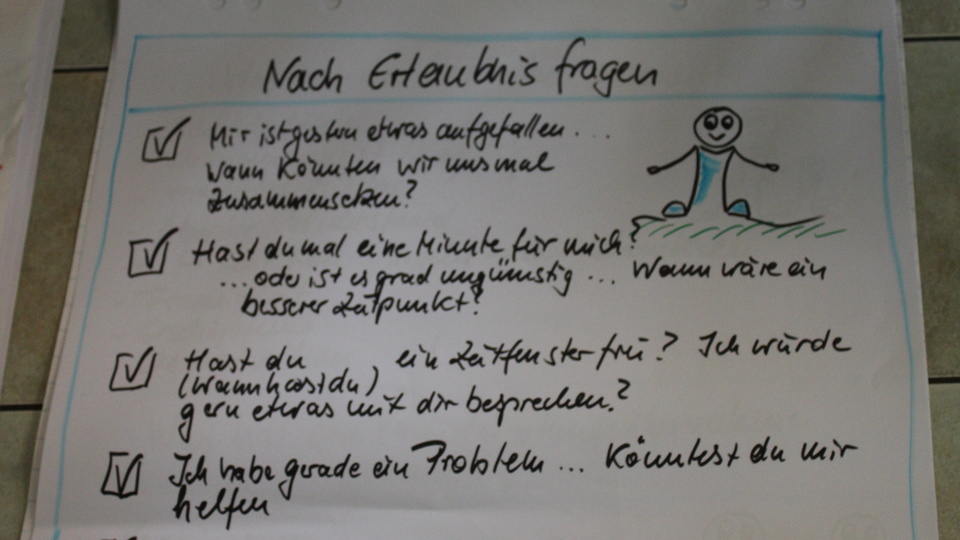 Nach Erlaubnis fragen
Mir ist gestern etwas aufgefallen ...
Wann könnten wir uns mal
zusammensetzen?
Hast du mal eine Minute für mich?
... oder ist es grad ungünstig ... Wann wäre ein
besserer Zeitpunkt?
Hast du ein Zeitfenster frei? Ich würde
(Wann hast du)
gern etwas mit dir besprechen?
Ich habe gerade ein Problem ... Könntest du mir
helfen